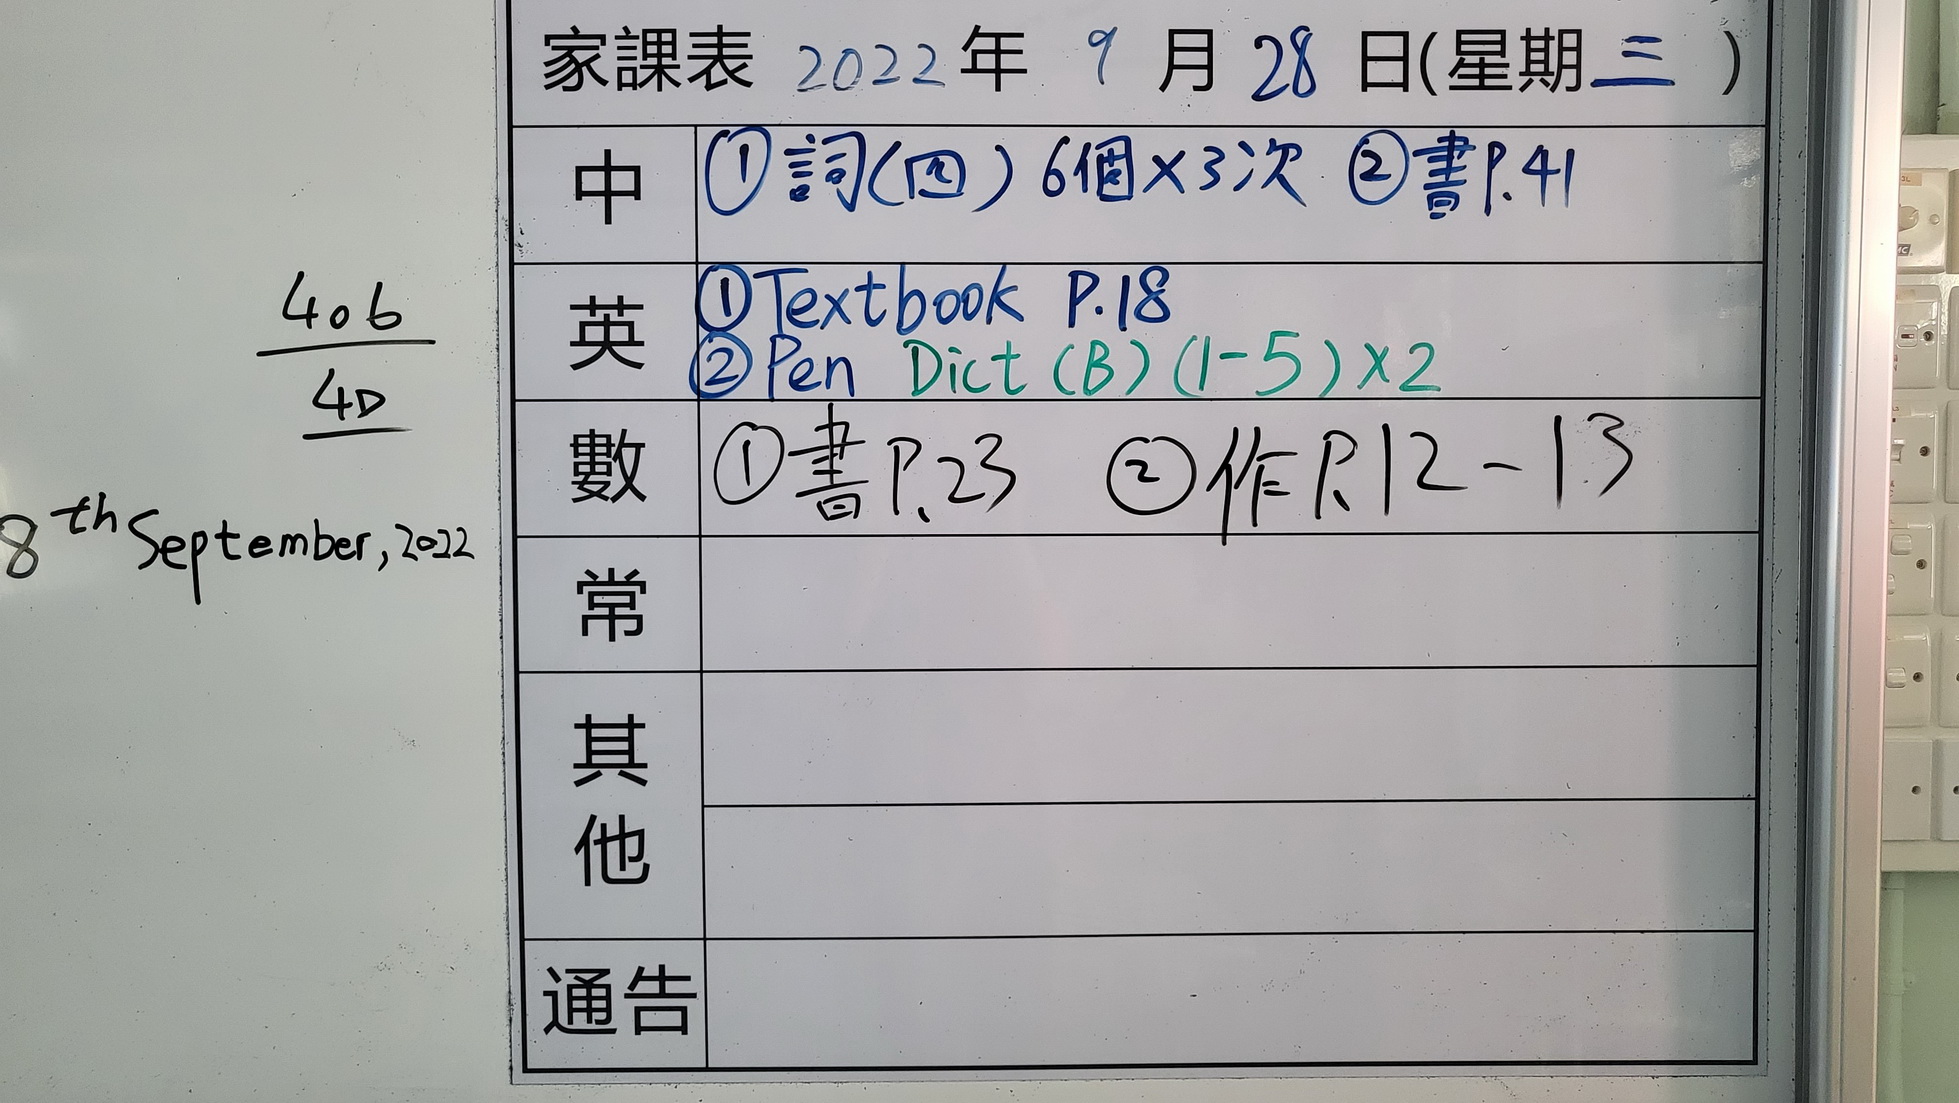 家課表 2022年 9月28日(星期三)
中 ①詞(四)6個×3次 ②書P.41
英 ①Textbook P.18
②Pen Dict (B) (1-5)×2
數 ①書P.23 ②作P.12-13
常
其他
通告
406
4D
8th September, 2022